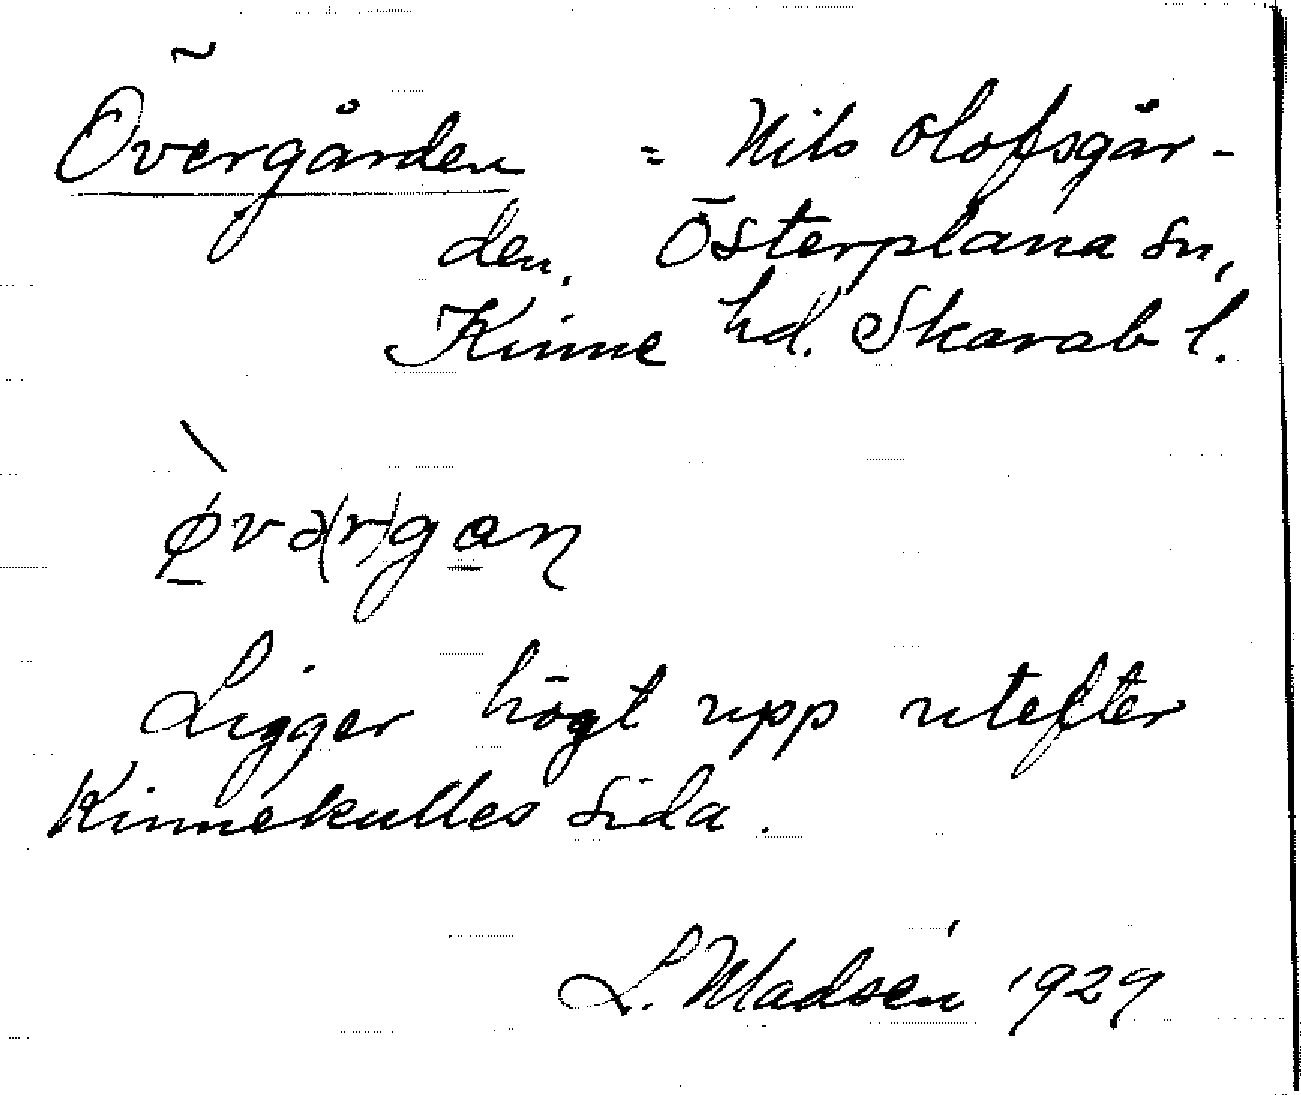 Övergården = Nils Olofsgår-
den. Österplana sn,
Kinne hd. Skarab l.
ø̱̀və(r)ga̱ɳ
Ligger högt upp utefter
Kinnekulles sida.
L. Madsén 1929